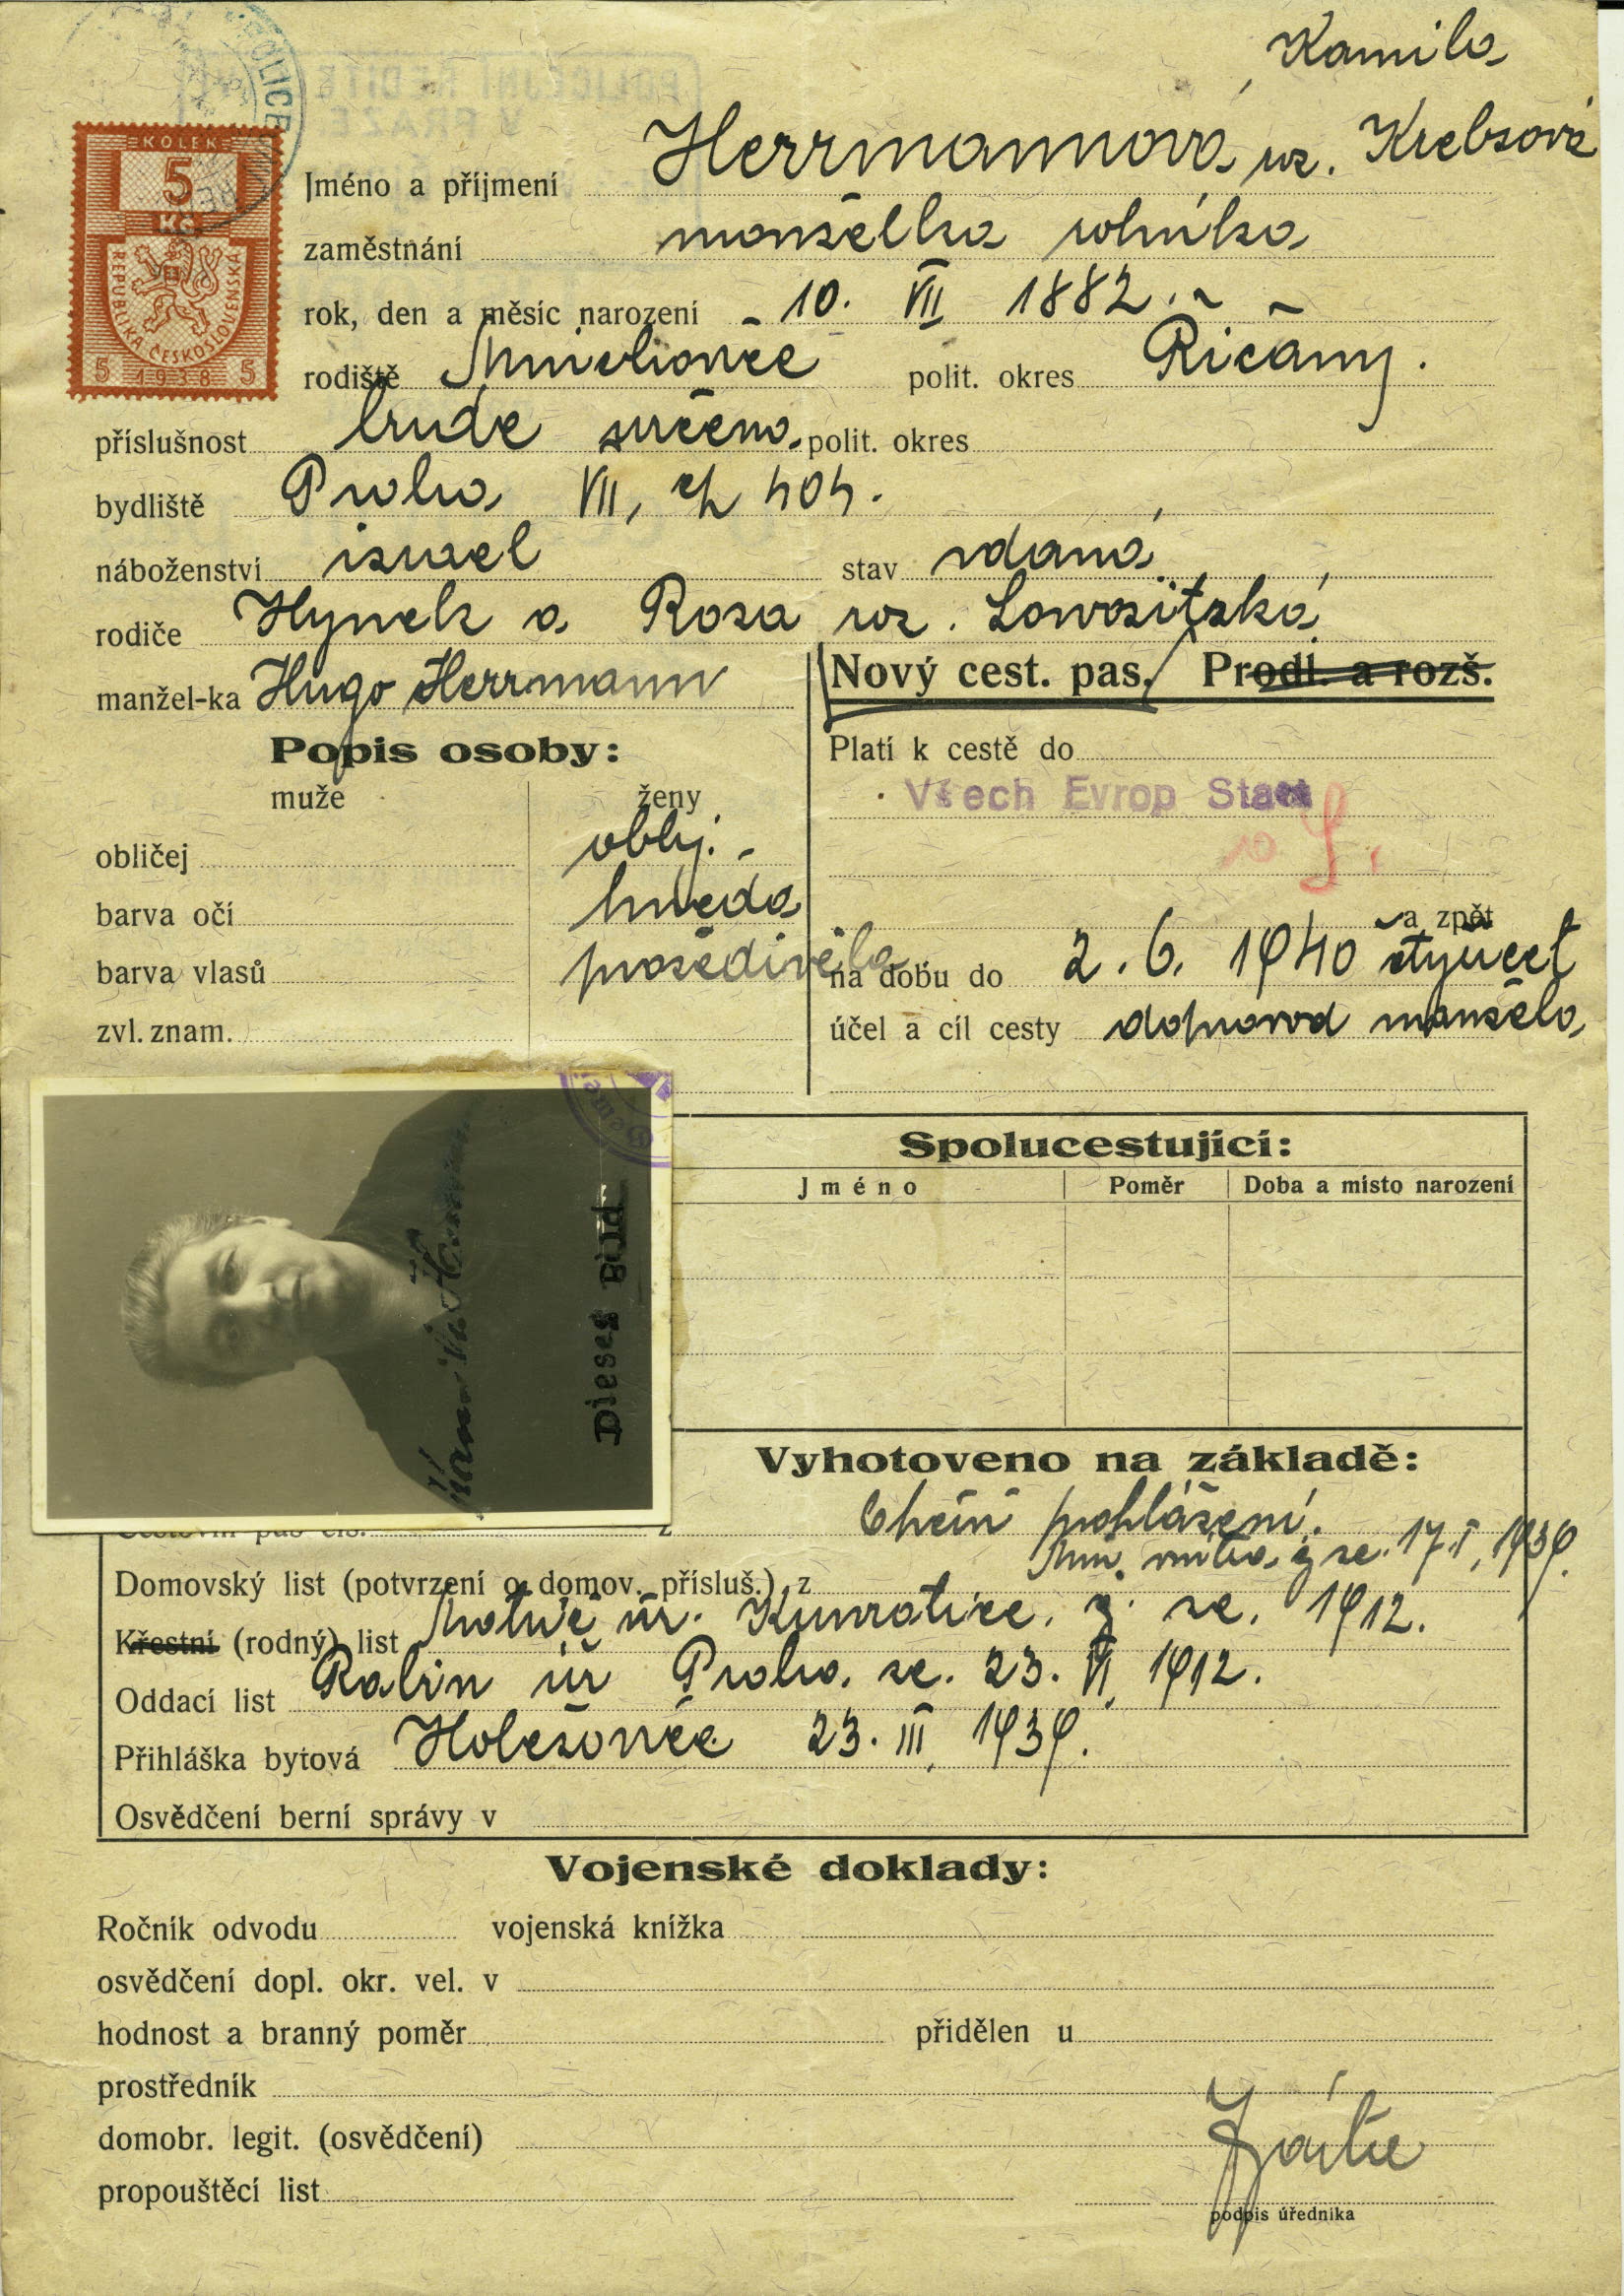 Kamila
KOLEK
5
Kč
REPUBLIKA ČESKOSLOVENSKÁ
5 1938 5
POLICE
Jméno a příjmení Herrmannová roz. Krebsová
zaměstnání manželka rolníka
rok, den a měsíc narození 10. VII 1882.
rodiště polit. okres Řičany.
příslušnost bude určena. polit. okres
bydliště Praha VII, čp 404.
náboženství israel stav vdaná
rodiče Hynek a Rosa roz. Lowositzká
manžel-ka Hugo Herrmann
Nový cest. pas. Prodl. a rozš.
Popis osoby:
muže ženy
obličej oblý.
barva očí hnědá
barva vlasů prošedivělá
zvl. znam.
Platí k cestě do
Všech Evrop Stat
a zpět
na dobu do 2. 6. 1940 čtyřicet
účel a cíl cesty doprovod manžela
Dieses Bild
Spolucestující:
Jméno Poměr Doba a místo narození
Vyhotoveno na základě:
prohlášení.
17. I. 1939.
Domovský list (potvrzení o domov. přísluš.) z
Křestní (rodný) list Matrič úř. Kunratice. ze. 1912.
Oddací list Rabín úř Praha. ze. 23. VI. 1912.
Přihláška bytová Holešovice 23. III. 1939.
Osvědčení berní správy v
Vojenské doklady:
Ročník odvodu vojenská knížka
osvědčení dopl. okr. vel. v
hodnost a branný poměr přidělen u
prostředník
domobr. legit. (osvědčení)
propouštěcí list
podpis úředníka